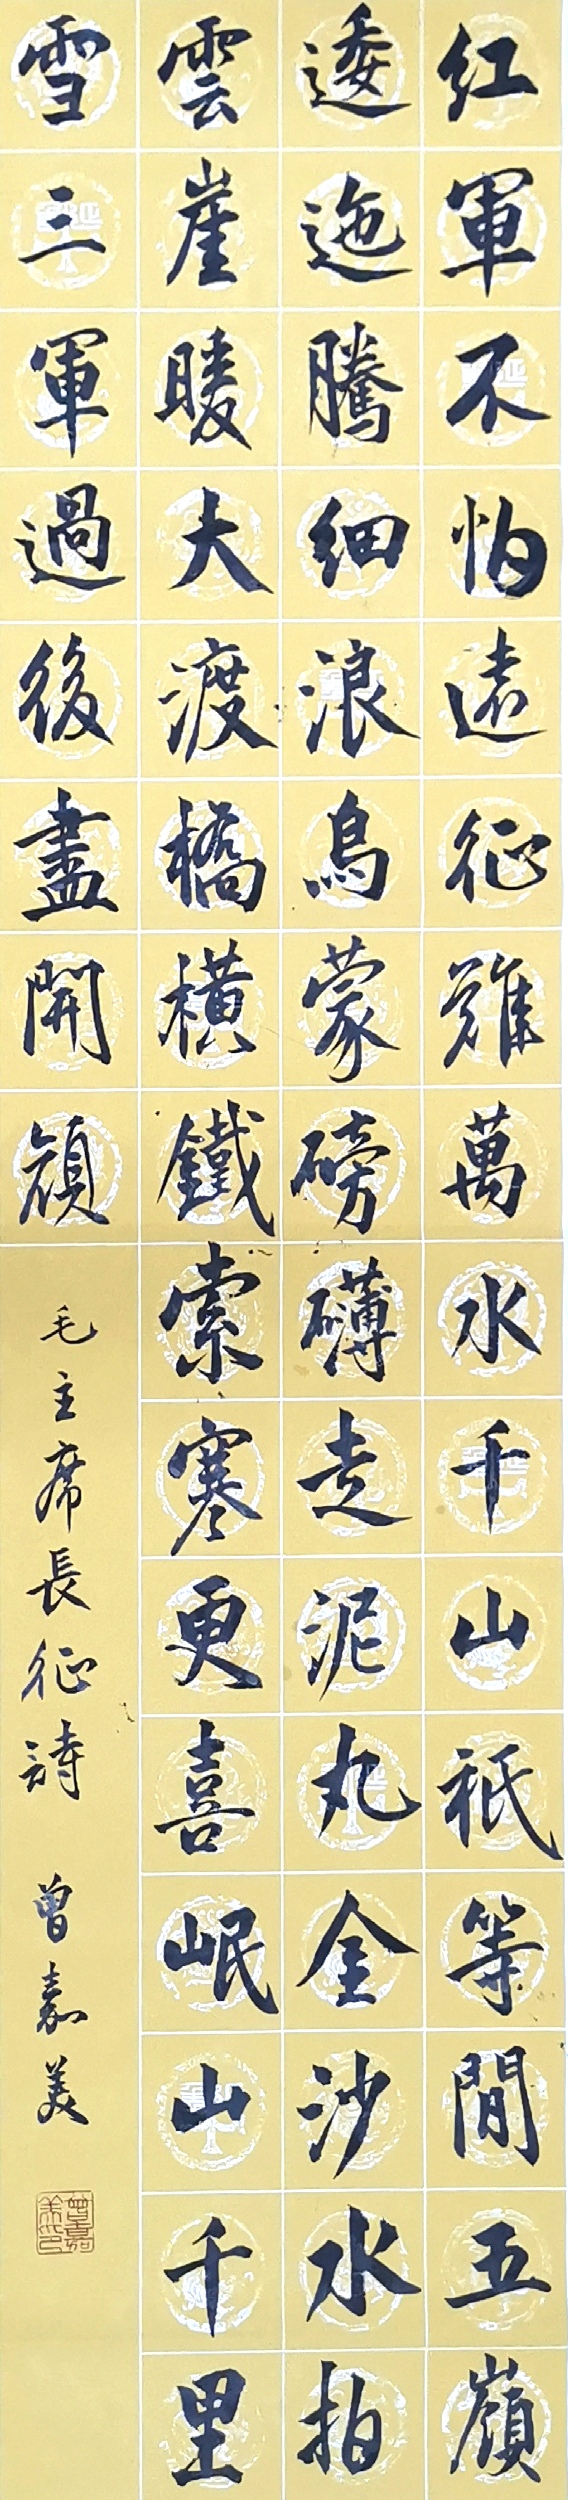 紅軍不怕遠征難萬水千山祇等閒五嶺
逶迤騰細浪烏蒙磅礴走泥丸金沙水拍
雲崖暖大渡橋橫鐵索寒更喜岷山千里
雪三軍過後盡開顔
毛主席長征詩 曾嘉美
曾嘉美印